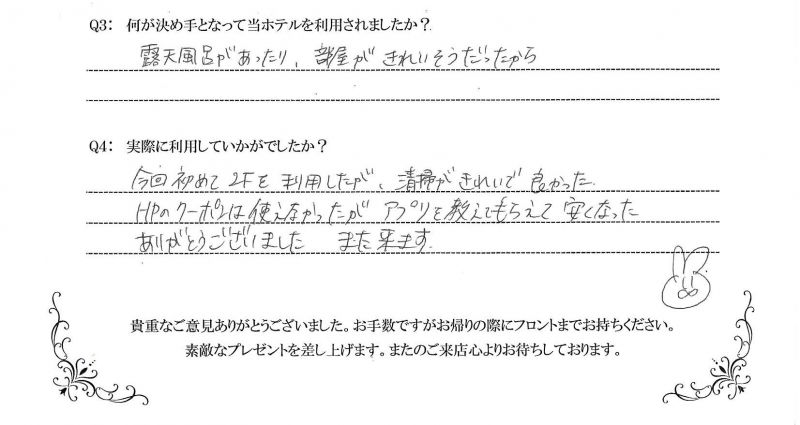 Q3: 何が決め手となって当ホテルを利用されましたか？
露天風呂があったり、部屋がきれいそうだったから
Q4: 実際に利用していかがでしたか？
今回初めて2Fを利用したが、清掃がきれいで良かった
HPのクーポンは使えなかったがアプリを教えてもらえて安くなった
ありがとうございました　また来ます.
貴重なご意見ありがとうございました。お手数ですがお帰りの際にフロントまでお持ちください。
素敵なプレゼントを差し上げます。またのご来店心よりお待ちしております。